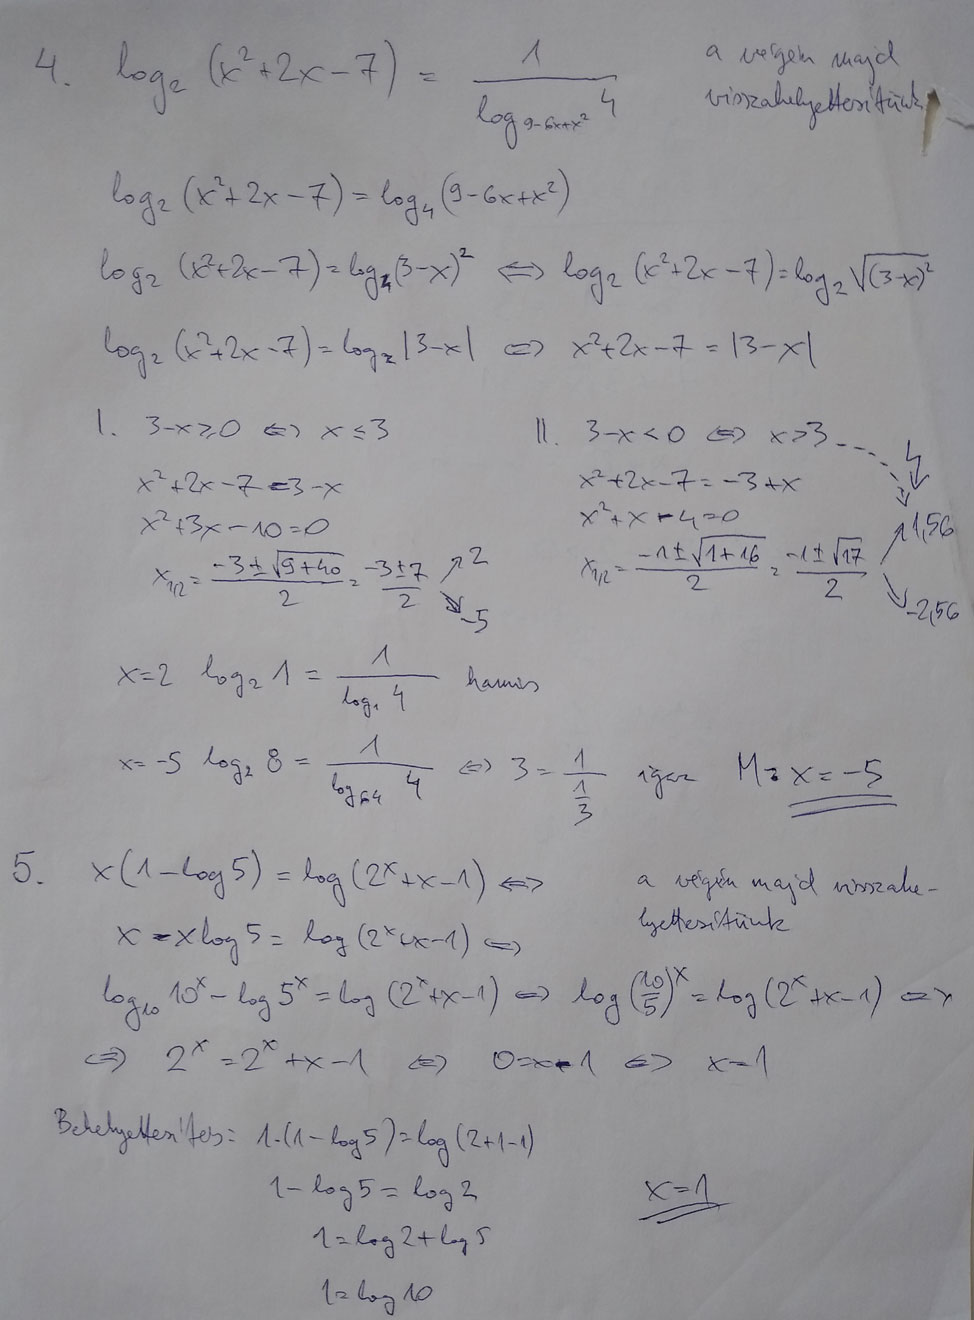 4. log₂ (x²+2x-7) = 1/(log_(9-6x+x²) 4) a végén majd visszahelyettesítünk
log₂ (x²+2x-7) = log₄ (9-6x+x²)
log₂ (x²+2x-7) = log₄ (3-x)² ⇔ log₂ (x²+2x-7) = log₂ √(3-x)²
log₂ (x²+2x-7) = log₂ |3-x| ⇔ x²+2x-7 = |3-x|
I. 3-x≥0 ⇔ x≤3
x²+2x-7=3-x
x²+3x-10=0
x₁/₂ = (-3±√(9+40))/2 = (-3±7)/2 ↗ 2 ↘ -5
II. 3-x<0 ⇔ x>3
x²+2x-7=-3+x
x²+x-4=0
x₁/₂ = (-1±√(1+16))/2 = (-1±√17)/2 ↗ 1,56 ↘ -2,56
x=2 log₂ 1 = 1/(log₁ 4) hamis
x=-5 log₂ 8 = 1/(log₆₄ 4) ⇔ 3 = 1/(1/3) igaz M: x=-5
5. x(1-log5) = log(2ˣ+x-1) ⇔ a végén majd visszahe-
lyettesítünk
x-xlog5 = log(2ˣ+x-1) ⇔
log₁₀ 10ˣ - log5ˣ = log(2ˣ+x-1) ⇔ log(10/5)ˣ = log(2ˣ+x-1) ⇔
⇔ 2ˣ=2ˣ+x-1 ⇔ 0=x-1 ⇔ x=1
Behelyettesítés: 1·(1-log5)=log(2+1-1)
1-log5=log2 x=1
1=log2+log5
1=log10